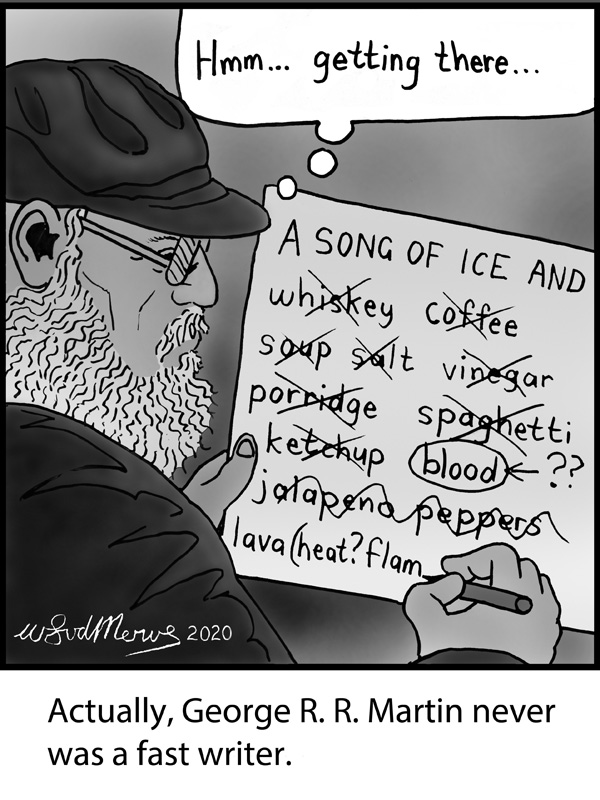 Hmm... getting there...
A SONG OF ICE AND
whiskey coffee
soup salt vinegar
porridge spaghetti
ketchup blood ← ??
jalapeno peppers
lava (heat? flam
wsvdMerwe 2020
Actually, George R. R. Martin never
was a fast writer.